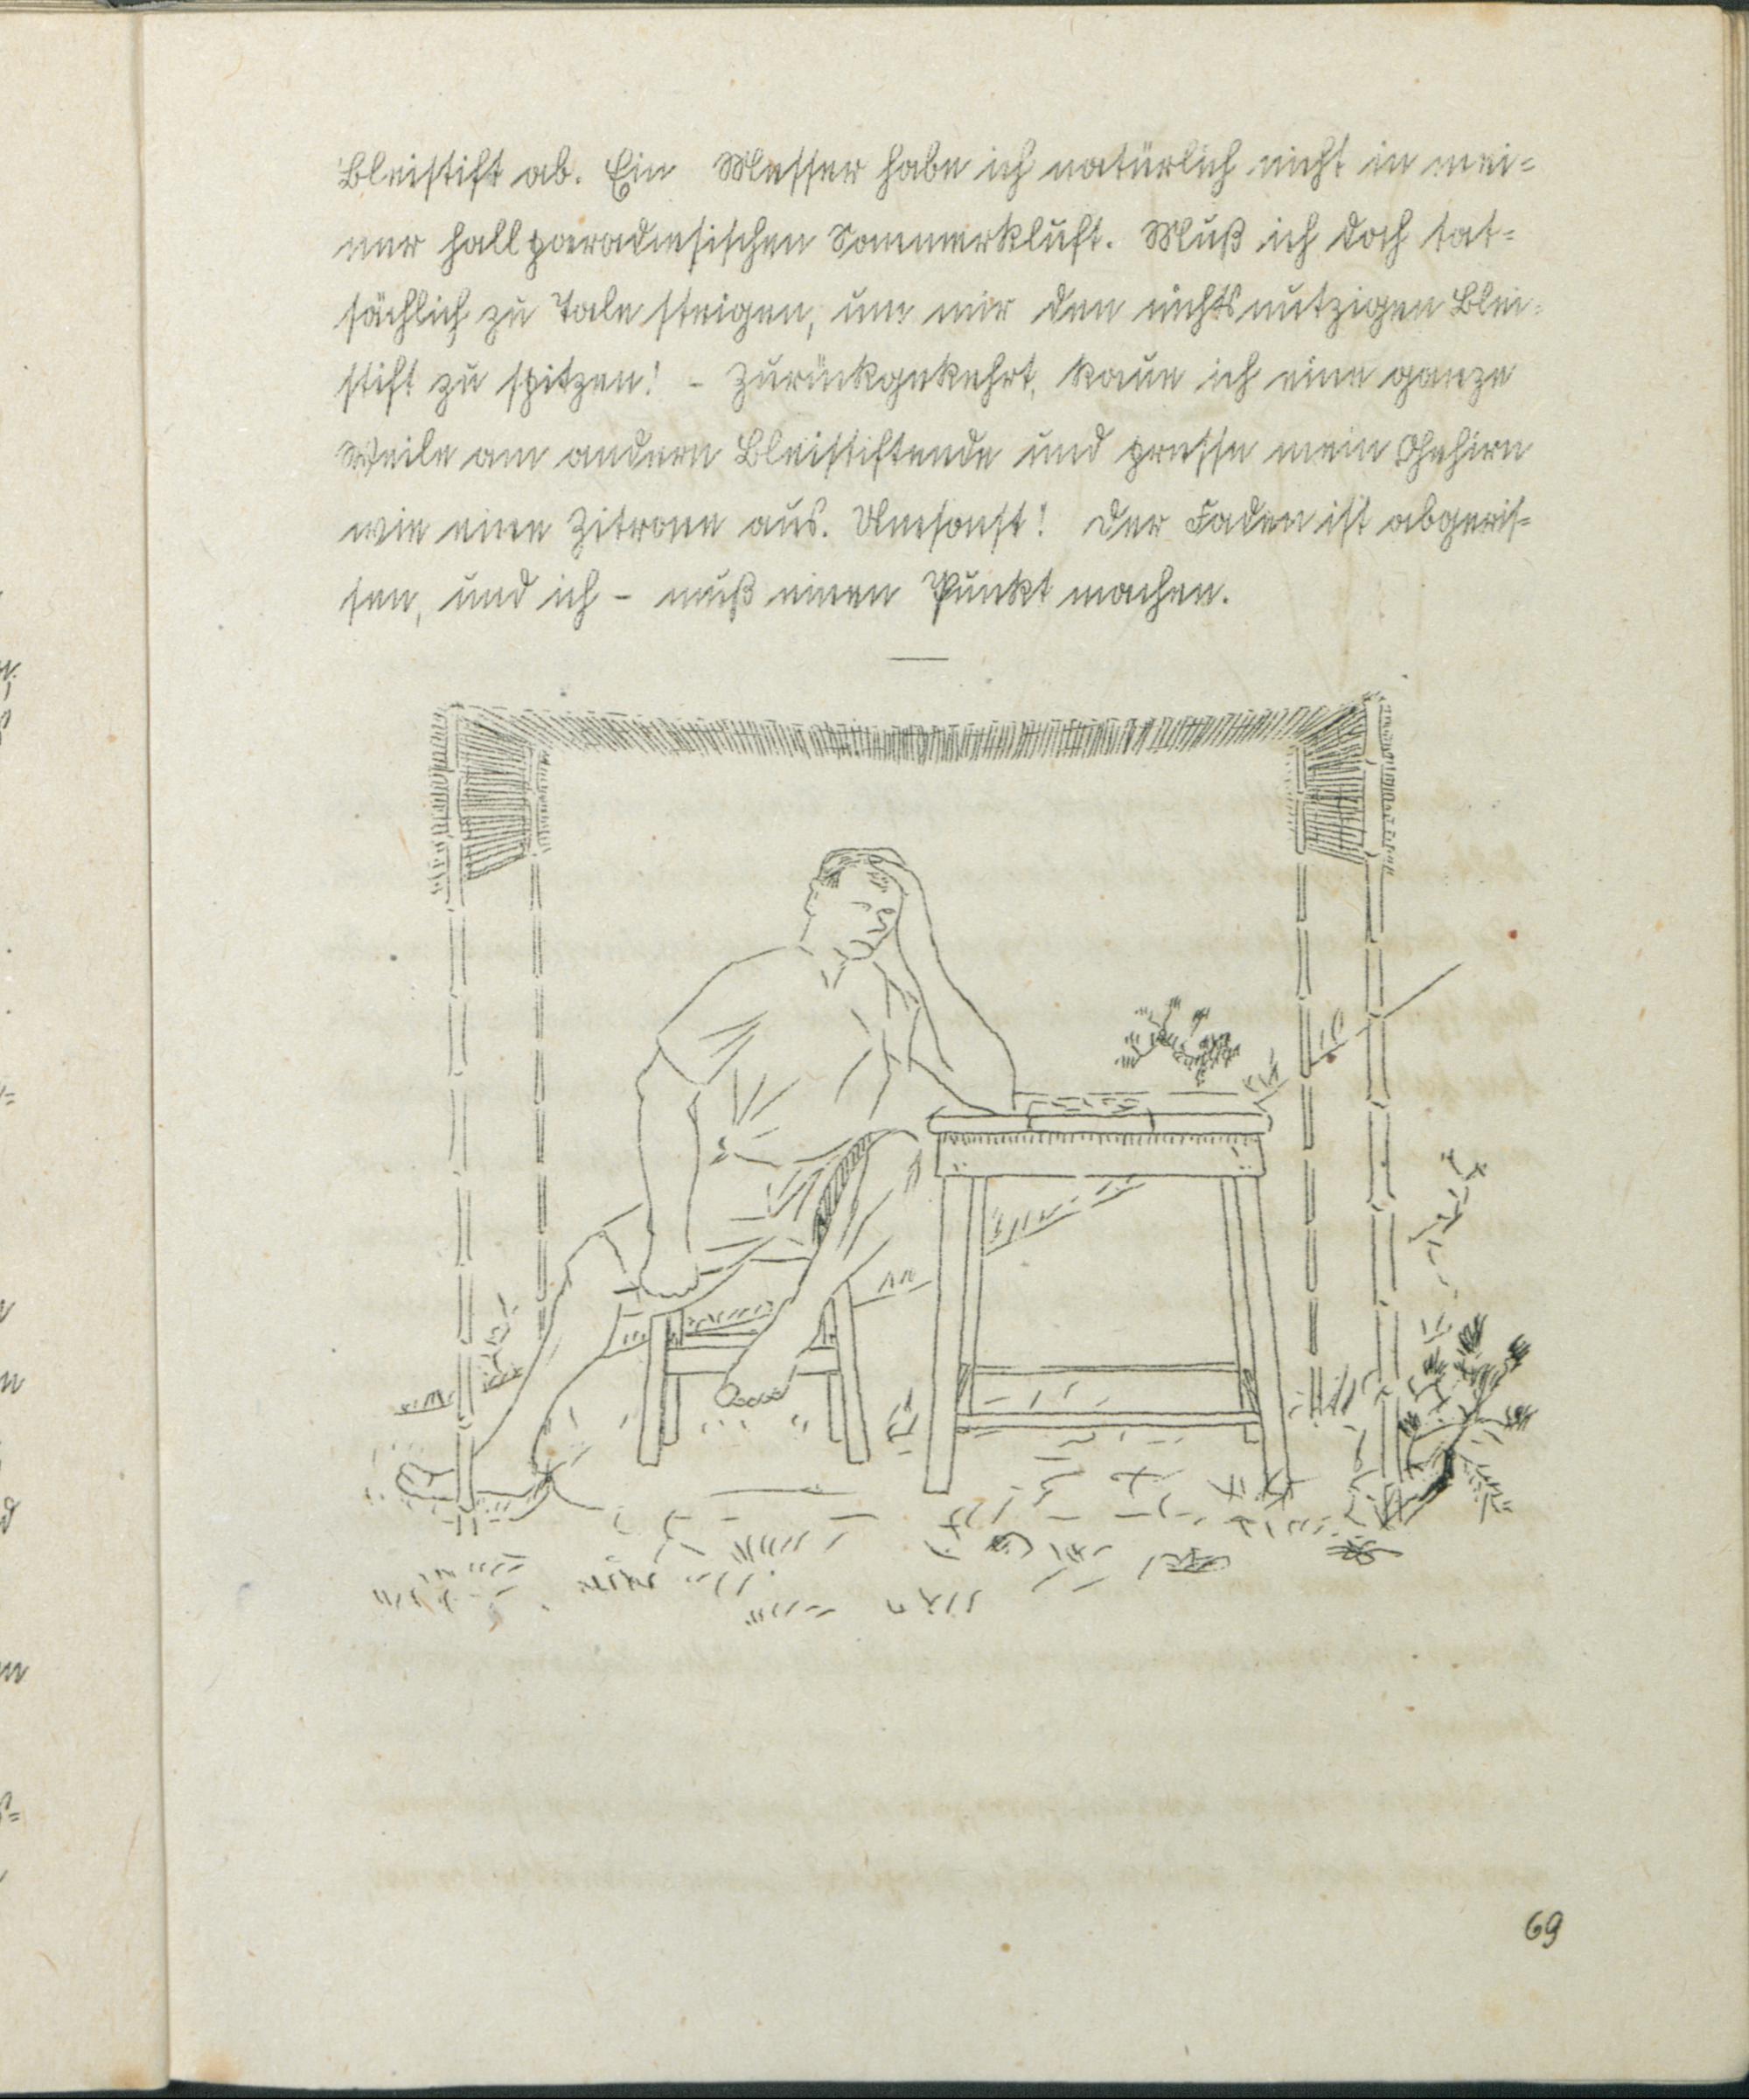 Bleistift ab. Ein Messer habe ich natürlich nicht in mei=
ner hallparadiesischen Sommerkluft. Muß ich doch tat=
sächlich zu Tale steigen, um mir den nichtsnutzigen Blei=
stift zu spitzen! - Zurückgekehrt, kaue ich eine ganze
Weile am andern Bleistiftende und presse mein Gehirn
wie eine Zitrone aus. Umsonst! Der Faden ist abgeris=
sen, und ich - muß einen Punkt machen.
69